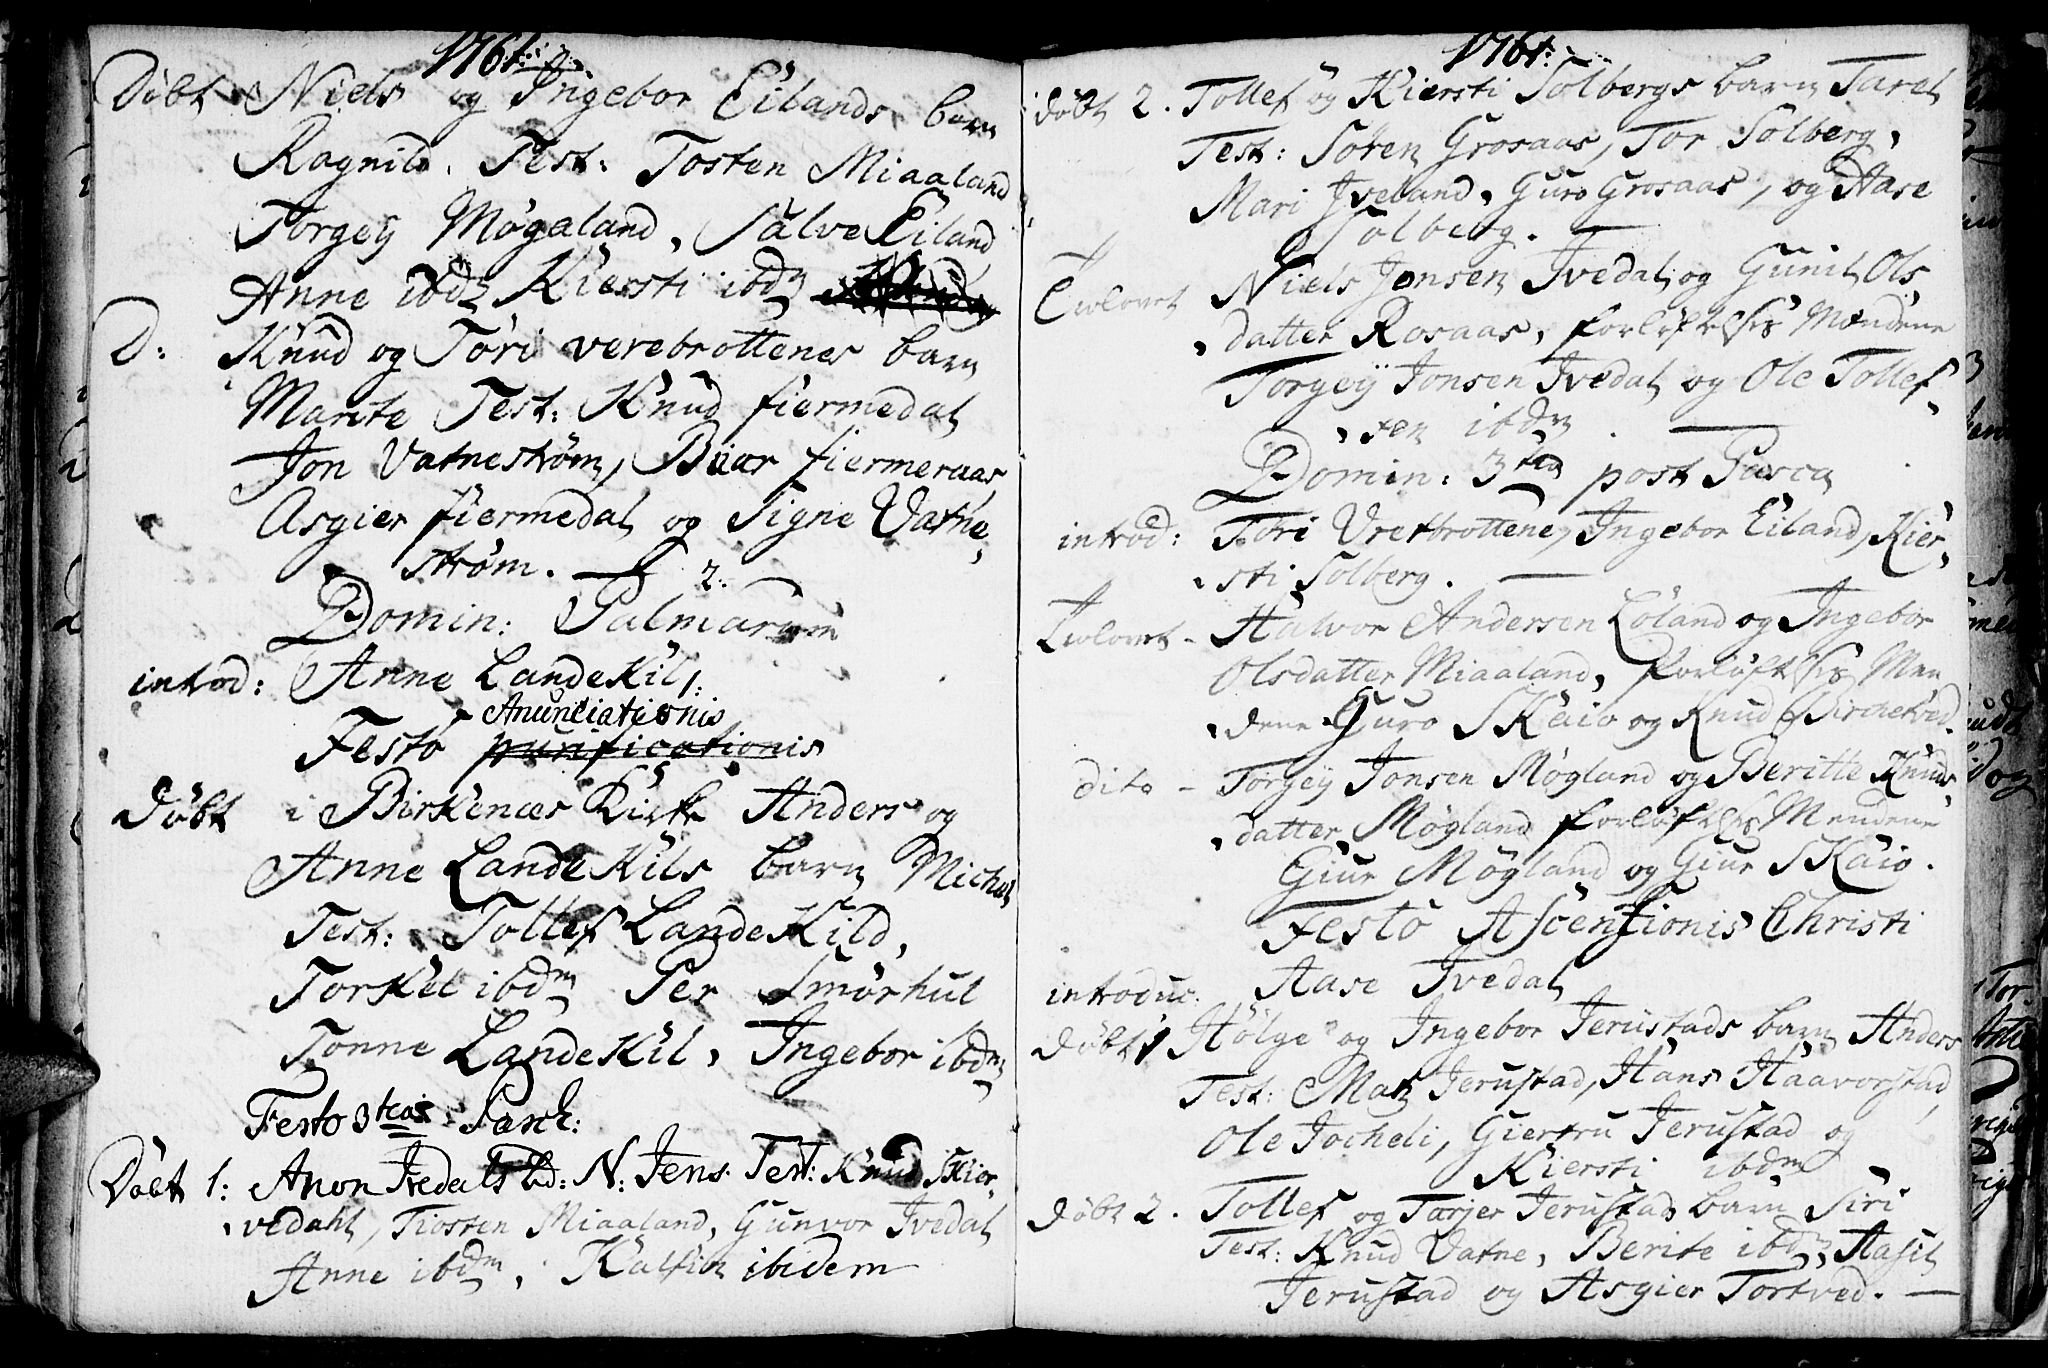 1761.
Döbt Niels og Ingebor Eilands barn
Ragnild. Test: Tosten Miaaland
Torgey Møgaland, Salve Eiland
Anne ibdm Kiersti ibdm
D: Knud og Töri verebrottenes barn
Marite Test: Knud fiermedal
Jon Vatneström, Biar fiermeraas
Asgier fiermedal og Signe Vatne,
ström. 2.
Domin: Palmarum
introd: Anne Landekil,:
Anunciationis
Festo purificationis
döbt i Birkenæs Kirke Anders og
Anne Landekils barn Michel
Test: Tollef Landekild,
Torkel ibdm Per Smørhul
Tonne Landekil, Ingebor ibdm
Festo 3tias Pasch:
Döbt 1: Anon Ivedals bd: N: Jens Test: Knud Skier,
,vedahl, Tiosten Miaaland, Gunvor Ivedal
Anne ibdm, Kalfin ibidem
1761.
döbt 2. Tollef og Kiersti Solbergs barn Tarel
Test: Sören Grosaas, Tor Solberg,
Mari Iveland, Guro Grosaas, og Aase
Solberg.
Trolovet Niels Jensen Ivedal og Gunil Ols,
,datter Rosaas, forlöfelses Mændene
Torgeÿ Jonsen Ivedal og Ole Tollef,
,sen ibdm
Domin: 3tia post Pasca
introd: Töri Vretbrottene, Ingebor Eiland, Kier,
,sti Solberg.
Trolovet - Halvor Andersen Löland og Ingebor
Olsdatter Miaaland, forlöftelses Men
,dene Guro Skaio og Knud Birchetved.
dito - Torgeÿ Jonsen Møgland og Beritte Knuds,
,datter Møgland forlöfelses Mendene
Giur Møgland og Giur Skaio.
Festo Ascensionis Christi
introduc: Aase Ivedal
döbt 1 Hölge og Ingebor Jerustads barn Anders
Test: Mats Jerustad, Hans Haavorstad,
Ole Jocheli, Giertru Jerustad og
Kiersti ibdm
döbt 2. Tollef og Tarjer Jerustads barn Siri
Test: Knud Vatne, Berite ibdm, Aasil
Jerustad og Asgier Tortved.